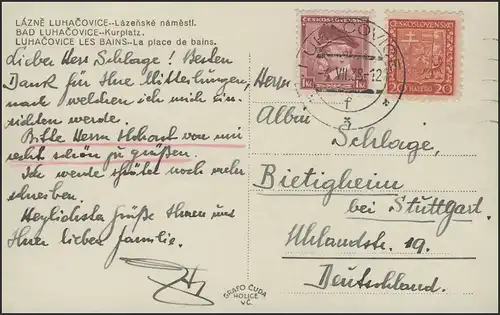 LÁZNĚ LUHAČOVICE--Lázeňské náměstí.
BAD LUHAČOVICE--Kurplatz.
LUHAČOVICE LES BAINS--La place de bains.
Lieber Herr Schlage! Besten
Dank für Ihre Mitteilungen,
nach welchen ich mich ein-
richten werde.
Bitte Herrn von mir
recht schön zu grüßen.
Ich werde später noch mehr
schreiben.
Herzlichste Grüße Ihnen und
Ihrer lieben Familie.
GRAFO ČUDA
HOLICE
V.Č.
ČESKOSLOVENSKO
1Kč 1Kč
ČESKOSLOVENSKO
20 HALÉŘŮ 20
VII. 35-12
f
3
Herrn
Albin
Schlage,
Bietigheim
bei Stuttgart.
Uhlandstr. 19.
Deutschland.